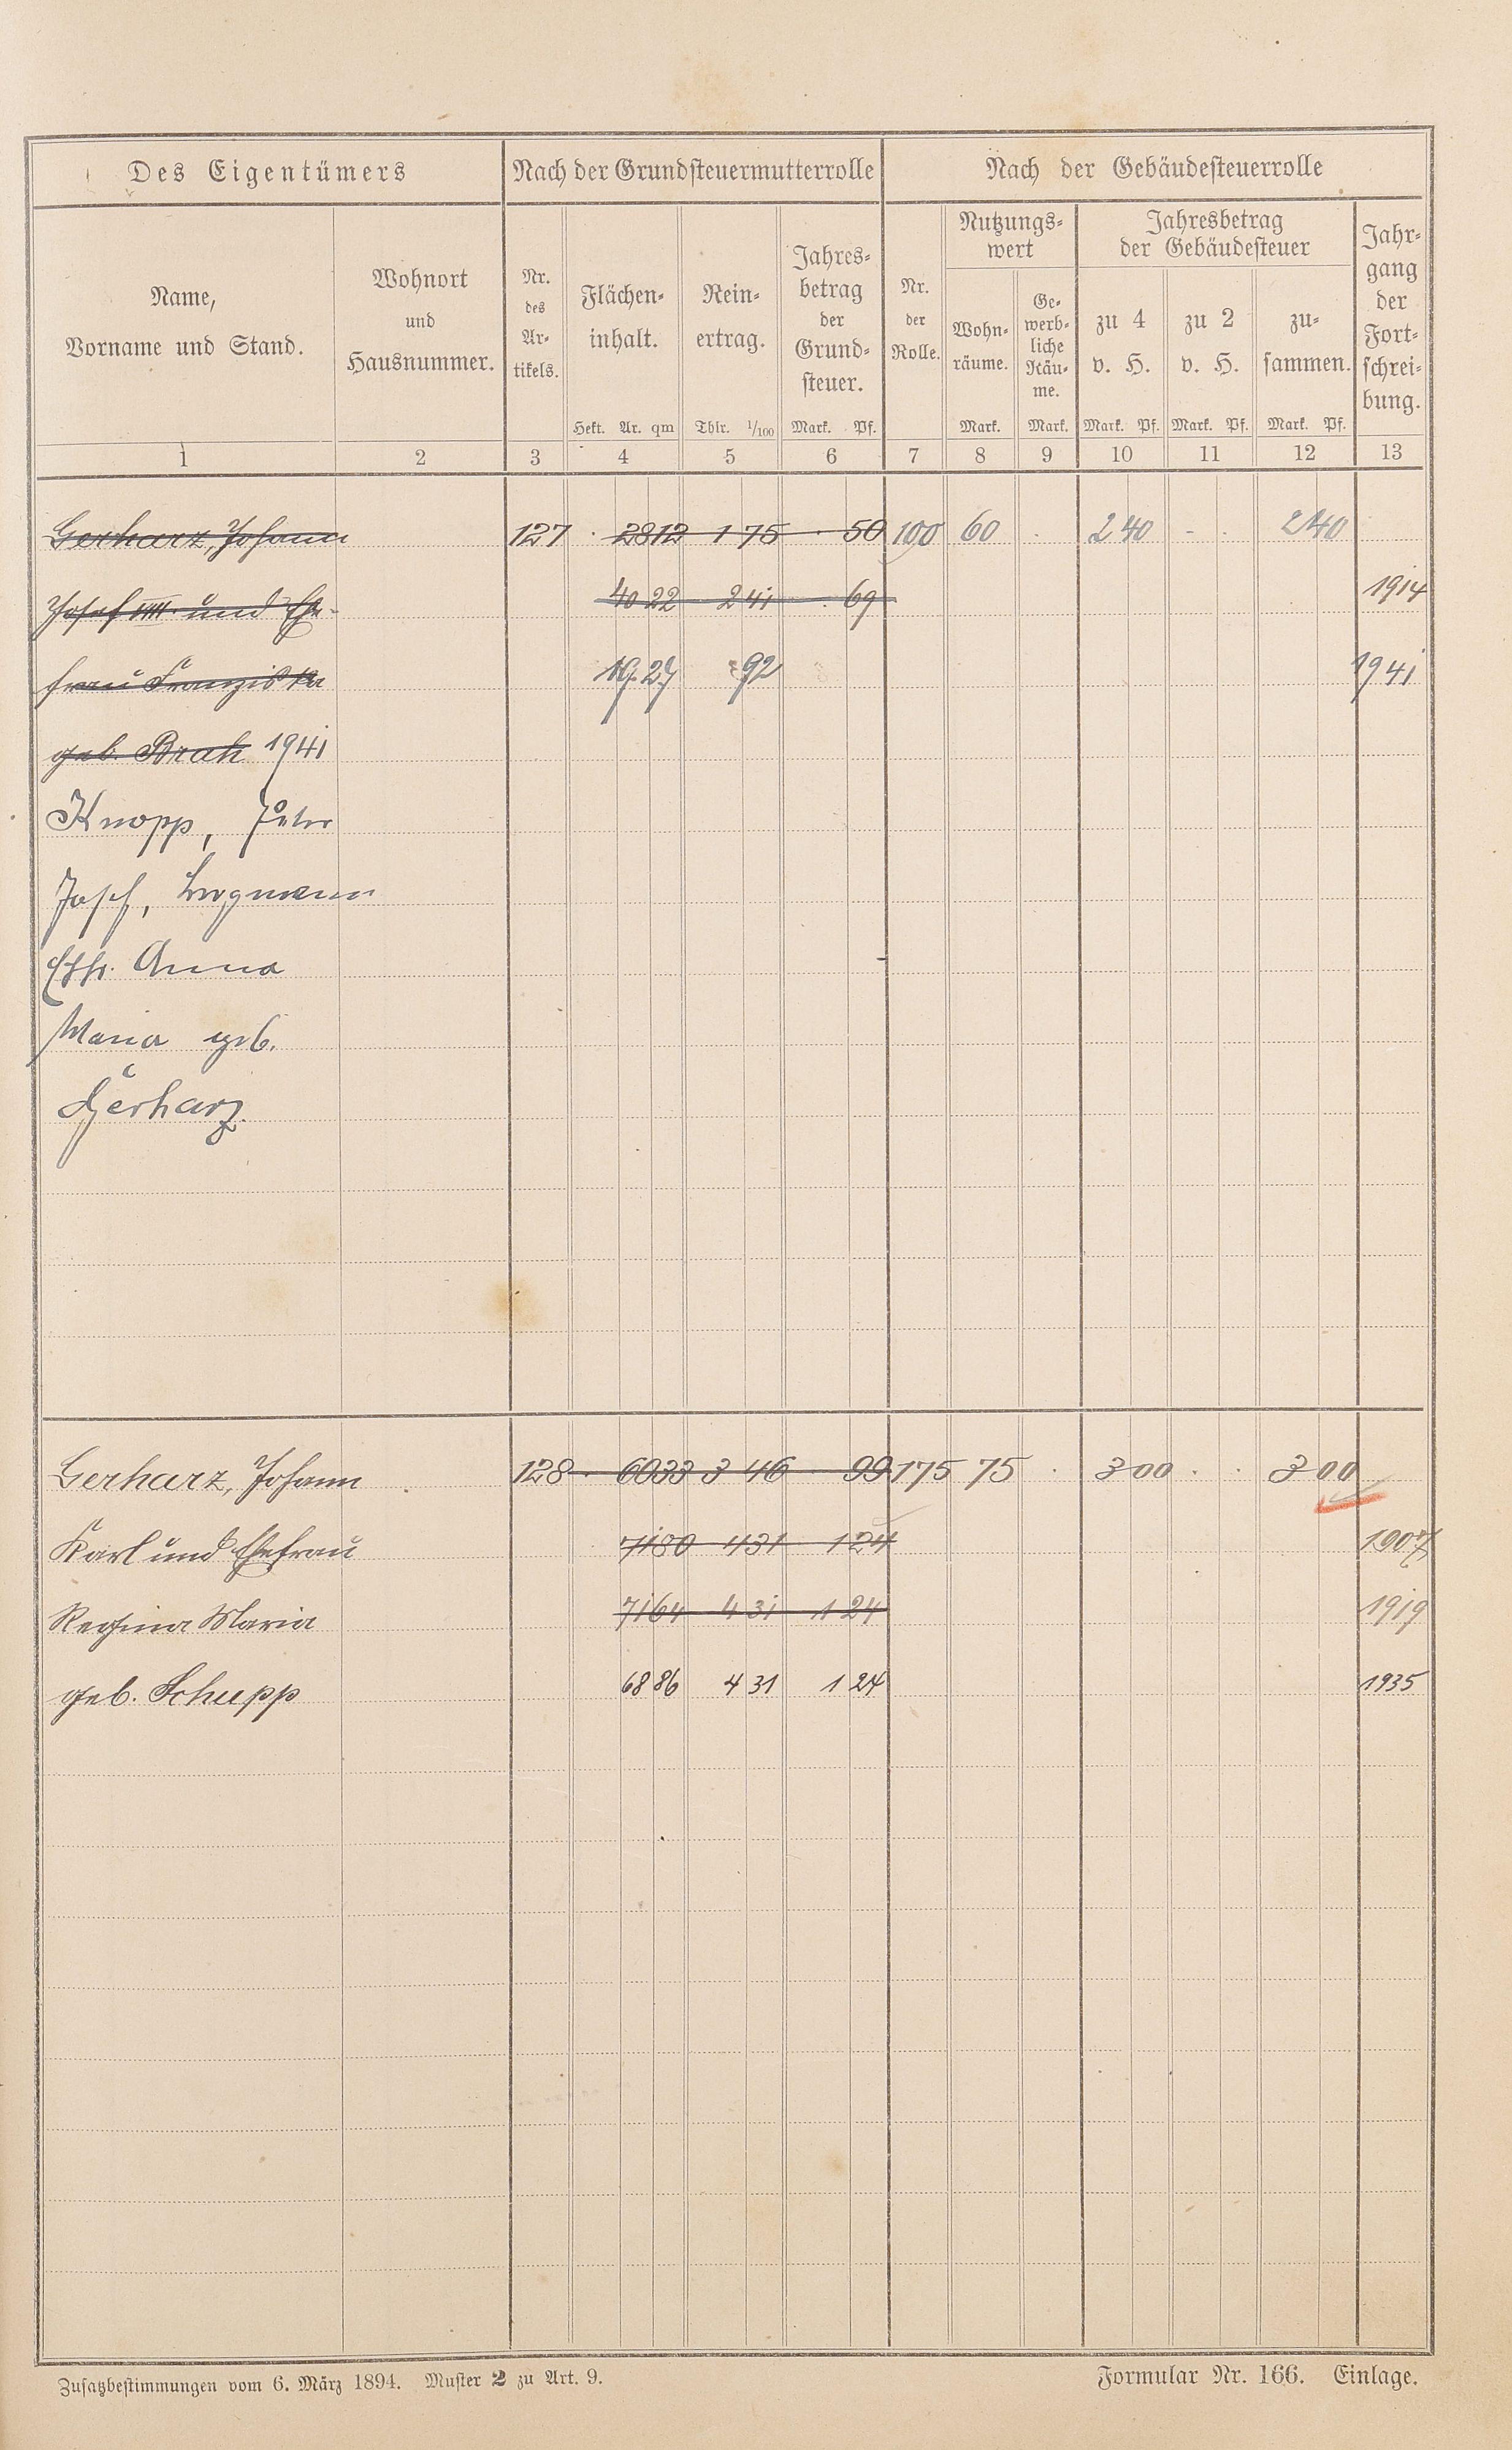 Des Eigentümers Nach der Grundsteuermutterrolle Nach der Gebäudesteuerrolle
Name, Vorname und Stand. Wohnort und Hausnummer. Nr. des Ar- tikels. Flächen- inhalt. Rein- ertrag. Jahres- betrag der Grund- steuer. Nr. der Rolle. Nutzungs- wert Jahresbetrag der Gebäudesteuer Jahr- gang der Fort- schrei- bung.
Wohn- räume. Ge- werb- liche Räu- me. zu 4 v. H. zu 2 v. H. zu- sammen.
Hekt. Ar. qm Thlr. 1/100 Mark. Pf. Mark. Mark. Mark. Pf. Mark. Pf. Mark. Pf.
1 2 3 4 5 6 7 8 9 10 11 12 13
Gerharz, Johann 127 · 28 12 1 75 · 50 100 60 · 2 40 - · 2 40
Josef IIII. und Ehe- 40 22 2 41 · 69 1914
frau Franziska 19 27 92 1941
geb. Brah 1941
Knopp, Peter
Josef, Bergmann
Ehfr. Anna
Maria geb.
Gerharz
Gerharz, Johann 128 · 60 33 3 46 · 99 175 75 · 3 00 · · 3 00
Karl und Ehefrau 71 80 4 31 1 24 1907
Regina Maria 71 64 4 31 1 24 1919
geb. Schupp 68 86 4 31 1 24 1935
Zusatzbestimmungen vom 6. März 1894. Muster 2 zu Art. 9. Formular Nr. 166. Einlage.